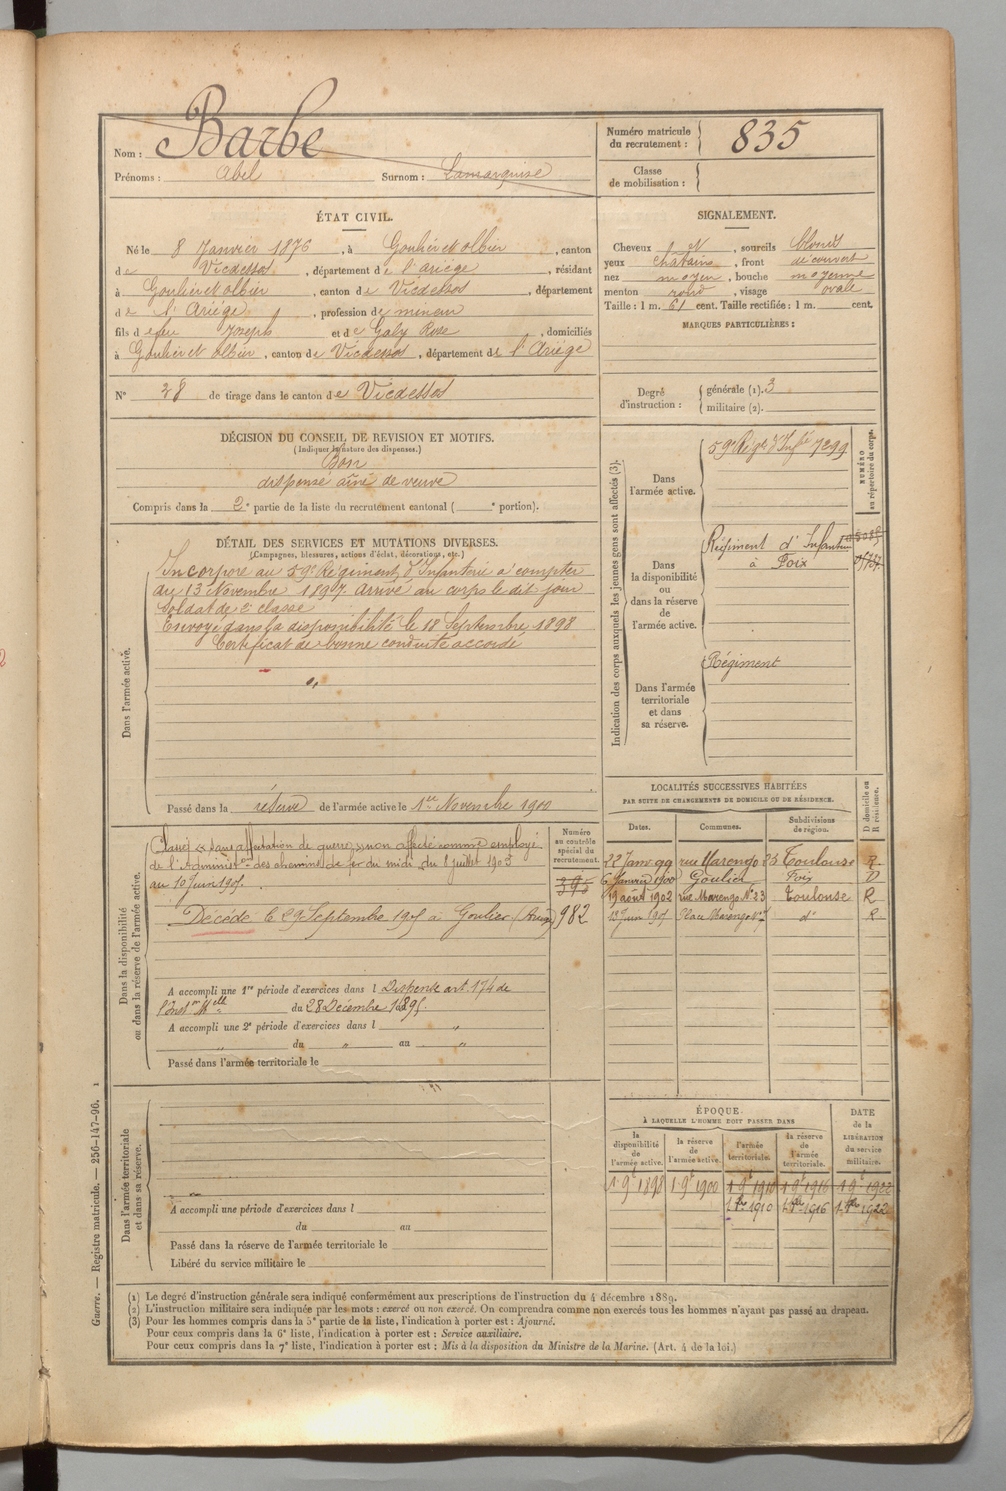 Nom : Barbe
Prénoms : Abel Surnom : Lamarquise
Numéro matricule du recrutement : 835
Classe de mobilisation :
ÉTAT CIVIL.
Né le 8 Janvier 1876, à Goulier et olbier, canton
de Vicdessos, département de l'ariège, résidant
à Goulier et olbier, canton de Vicdessos, département
de l'Ariège, profession de mineur
fils de feu Joseph et de Galy Rose, domiciliés
à Goulier et olbier, canton de Vicdessos, département de l'Ariège
N° 28 de tirage dans le canton de Vicdessos
SIGNALEMENT.
Cheveux N, sourcils blonds
yeux chatains, front découvert
nez moyen, bouche moyenne
menton rond, visage ovale
Taille : 1 m. 61 cent. Taille rectifiée : 1 m. cent.
MARQUES PARTICULIÈRES :
Degré d'instruction : générale (1). 3
militaire (2).
DÉCISION DU CONSEIL DE REVISION ET MOTIFS.
(Indiquer la nature des dispenses.)
Bon
dispensé aîné de veuve
Compris dans la 2e partie de la liste du recrutement cantonal ( e portion).
DÉTAIL DES SERVICES ET MUTATIONS DIVERSES.
(Campagnes, blessures, actions d'éclat, décorations, etc.)
Dans l'armée active.
Incorporé au 59e Régiment d'Infanterie à compter
du 13 Novembre 1897. arrivé au corps le dit jour
Soldat de 2e classe
Envoyé dans la disponibilité le 18 Septembre 1898
Certificat de bonne conduite accordé
Passé dans la réserve de l'armée active le 1er Novembre 1900
Indication des corps auxquels les jeunes gens sont affectés (3).
NUMÉRO au répertoire du corps.
Dans l'armée active.
59e Régt d'Infie 7299
Dans la disponibilité ou dans la réserve de l'armée active.
Régiment d'Infanterie
à Foix
Dans l'armée territoriale et dans sa réserve.
Régiment
Dans la disponibilité ou dans la réserve de l'armée active.
Numéro au contrôle spécial du recrutement.
395
982
Classé sans affectation de guerre non affecté comme employé
de l'Administon des chemins de fer du midi du 1 juillet 1903
au 10 Juin 1905.
Décédé le 29 Septembre 1905 à Goulier (Ariège)
A accompli une 1re période d'exercices dans l Dispensé art. 174 de
l'Inston Melle du 28 Décembre 1895.
A accompli une 2e période d'exercices dans l "
" du " au "
Passé dans l'armée territoriale le
LOCALITÉS SUCCESSIVES HABITÉES
PAR SUITE DE CHANGEMENTS DE DOMICILE OU DE RÉSIDENCE.
Dates. Communes. Subdivisions de région. D domicile ou R résidence.
22 Janv 99 rue Marengo 23 Toulouse R.
6 Janvier 1900 Goulier Foix D
19 août 1902 rue Marengo N° 23 Toulouse R
13 Juin 1905 Place Marengo N° 7 d° R.
Dans l'armée territoriale et dans sa réserve.
A accompli une période d'exercices dans l
du au
Passé dans la réserve de l'armée territoriale le
Libéré du service militaire le
ÉPOQUE
À LAQUELLE L'HOMME DOIT PASSER DANS
la disponibilité de l'armée active. la réserve de l'armée active. l'armée territoriale. la réserve de l'armée territoriale. DATE de la LIBÉRATION du service militaire.
1 9e 1898 1 9e 1900 1 9e 1910 1 9e 1916 1 9e 1922
1 8bre 1910 1 8bre 1916 1 8bre 1922
(1) Le degré d'instruction générale sera indiqué conformément aux prescriptions de l'instruction du 4 décembre 1889.
(2) L'instruction militaire sera indiquée par les mots : exercé ou non exercé. On comprendra comme non exercés tous les hommes n'ayant pas passé au drapeau.
(3) Pour les hommes compris dans la 5e partie de la liste, l'indication à porter est : Ajourné.
Pour ceux compris dans la 6e liste, l'indication à porter est : Service auxiliaire.
Pour ceux compris dans la 7e liste, l'indication à porter est : Mis à la disposition du Ministre de la Marine. (Art. 4 de la loi.)
Guerre. — Registre matricule. — 256-147-96. 1